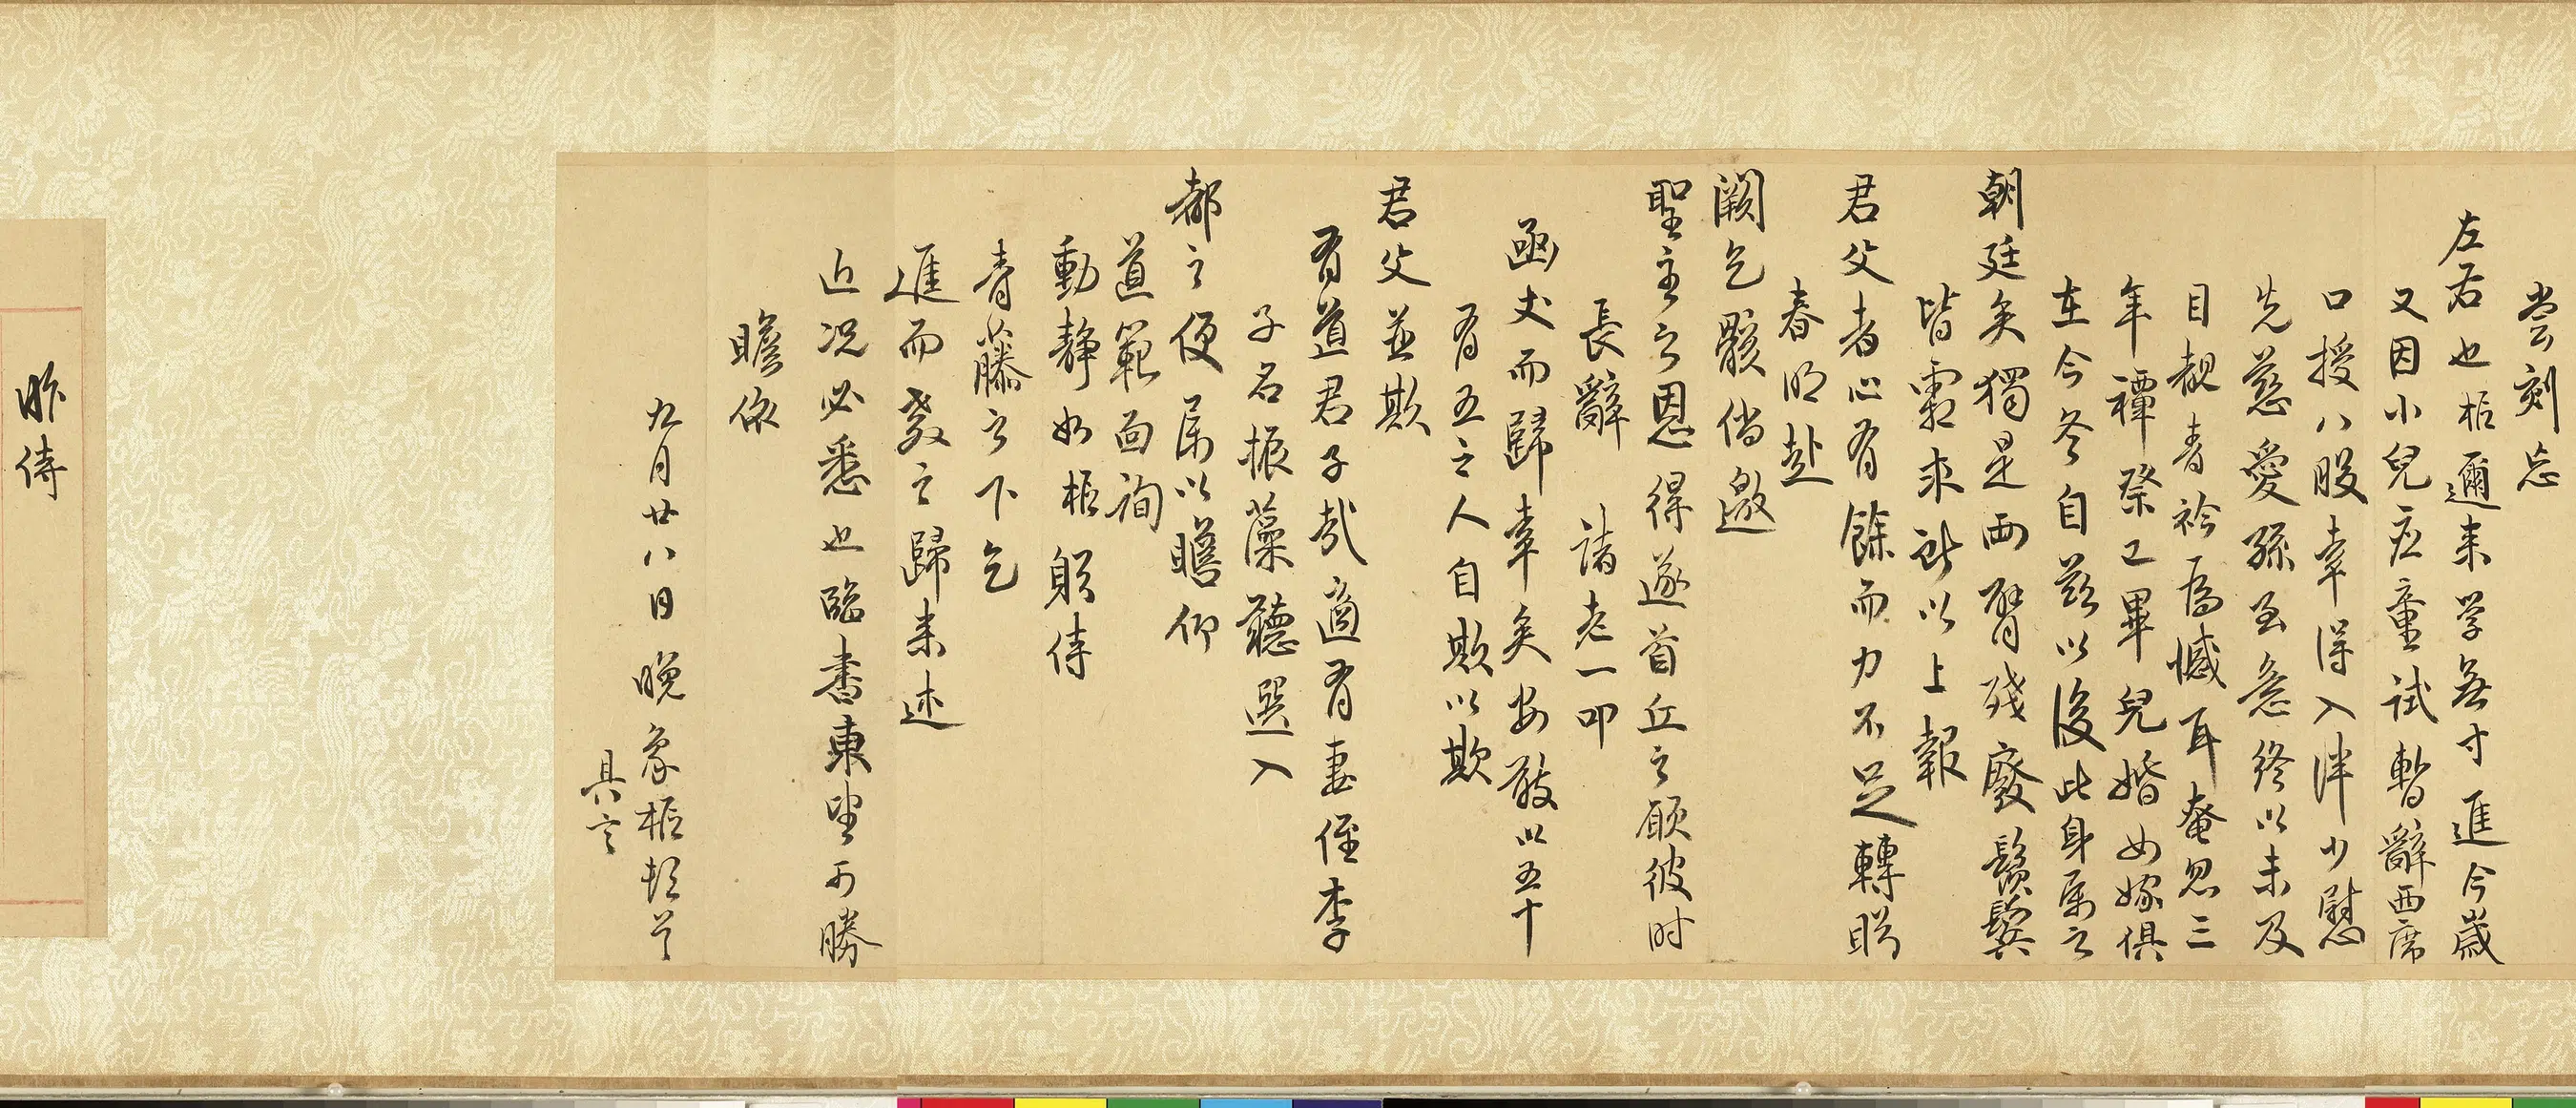 嘗刻忘
左右也柜邇来学無寸進今歲
又因小兒应童試暫辭西席
口授八股幸得入泮少慰
先慈愛孫至意終以未及
目覩青衿為憾耳奄忽三
年禫祭已畢兒婚女嫁俱
在今冬自兹以後此身屬之
朝廷矣獨是兩臂殘廢鬚鬢
皆霜求所以上報
君父者心有餘而力不足轉盼
春明赴
闕乞骸倘邀
聖主之恩得遂首丘之願彼时
長辭 諸老一叩
函丈而歸幸矣安敢以五十
有五之人自欺以欺
君父並欺
有道君子哉適有妻侄李
子名振藻聽選入
都之便属以瞻仰
道範面詢
動靜如柜躬侍
青藤之下乞
進而教之歸来述
近况必悉也臨書東望可勝
瞻依
九月廿八日 晚象柜頓首
具言
昨侍